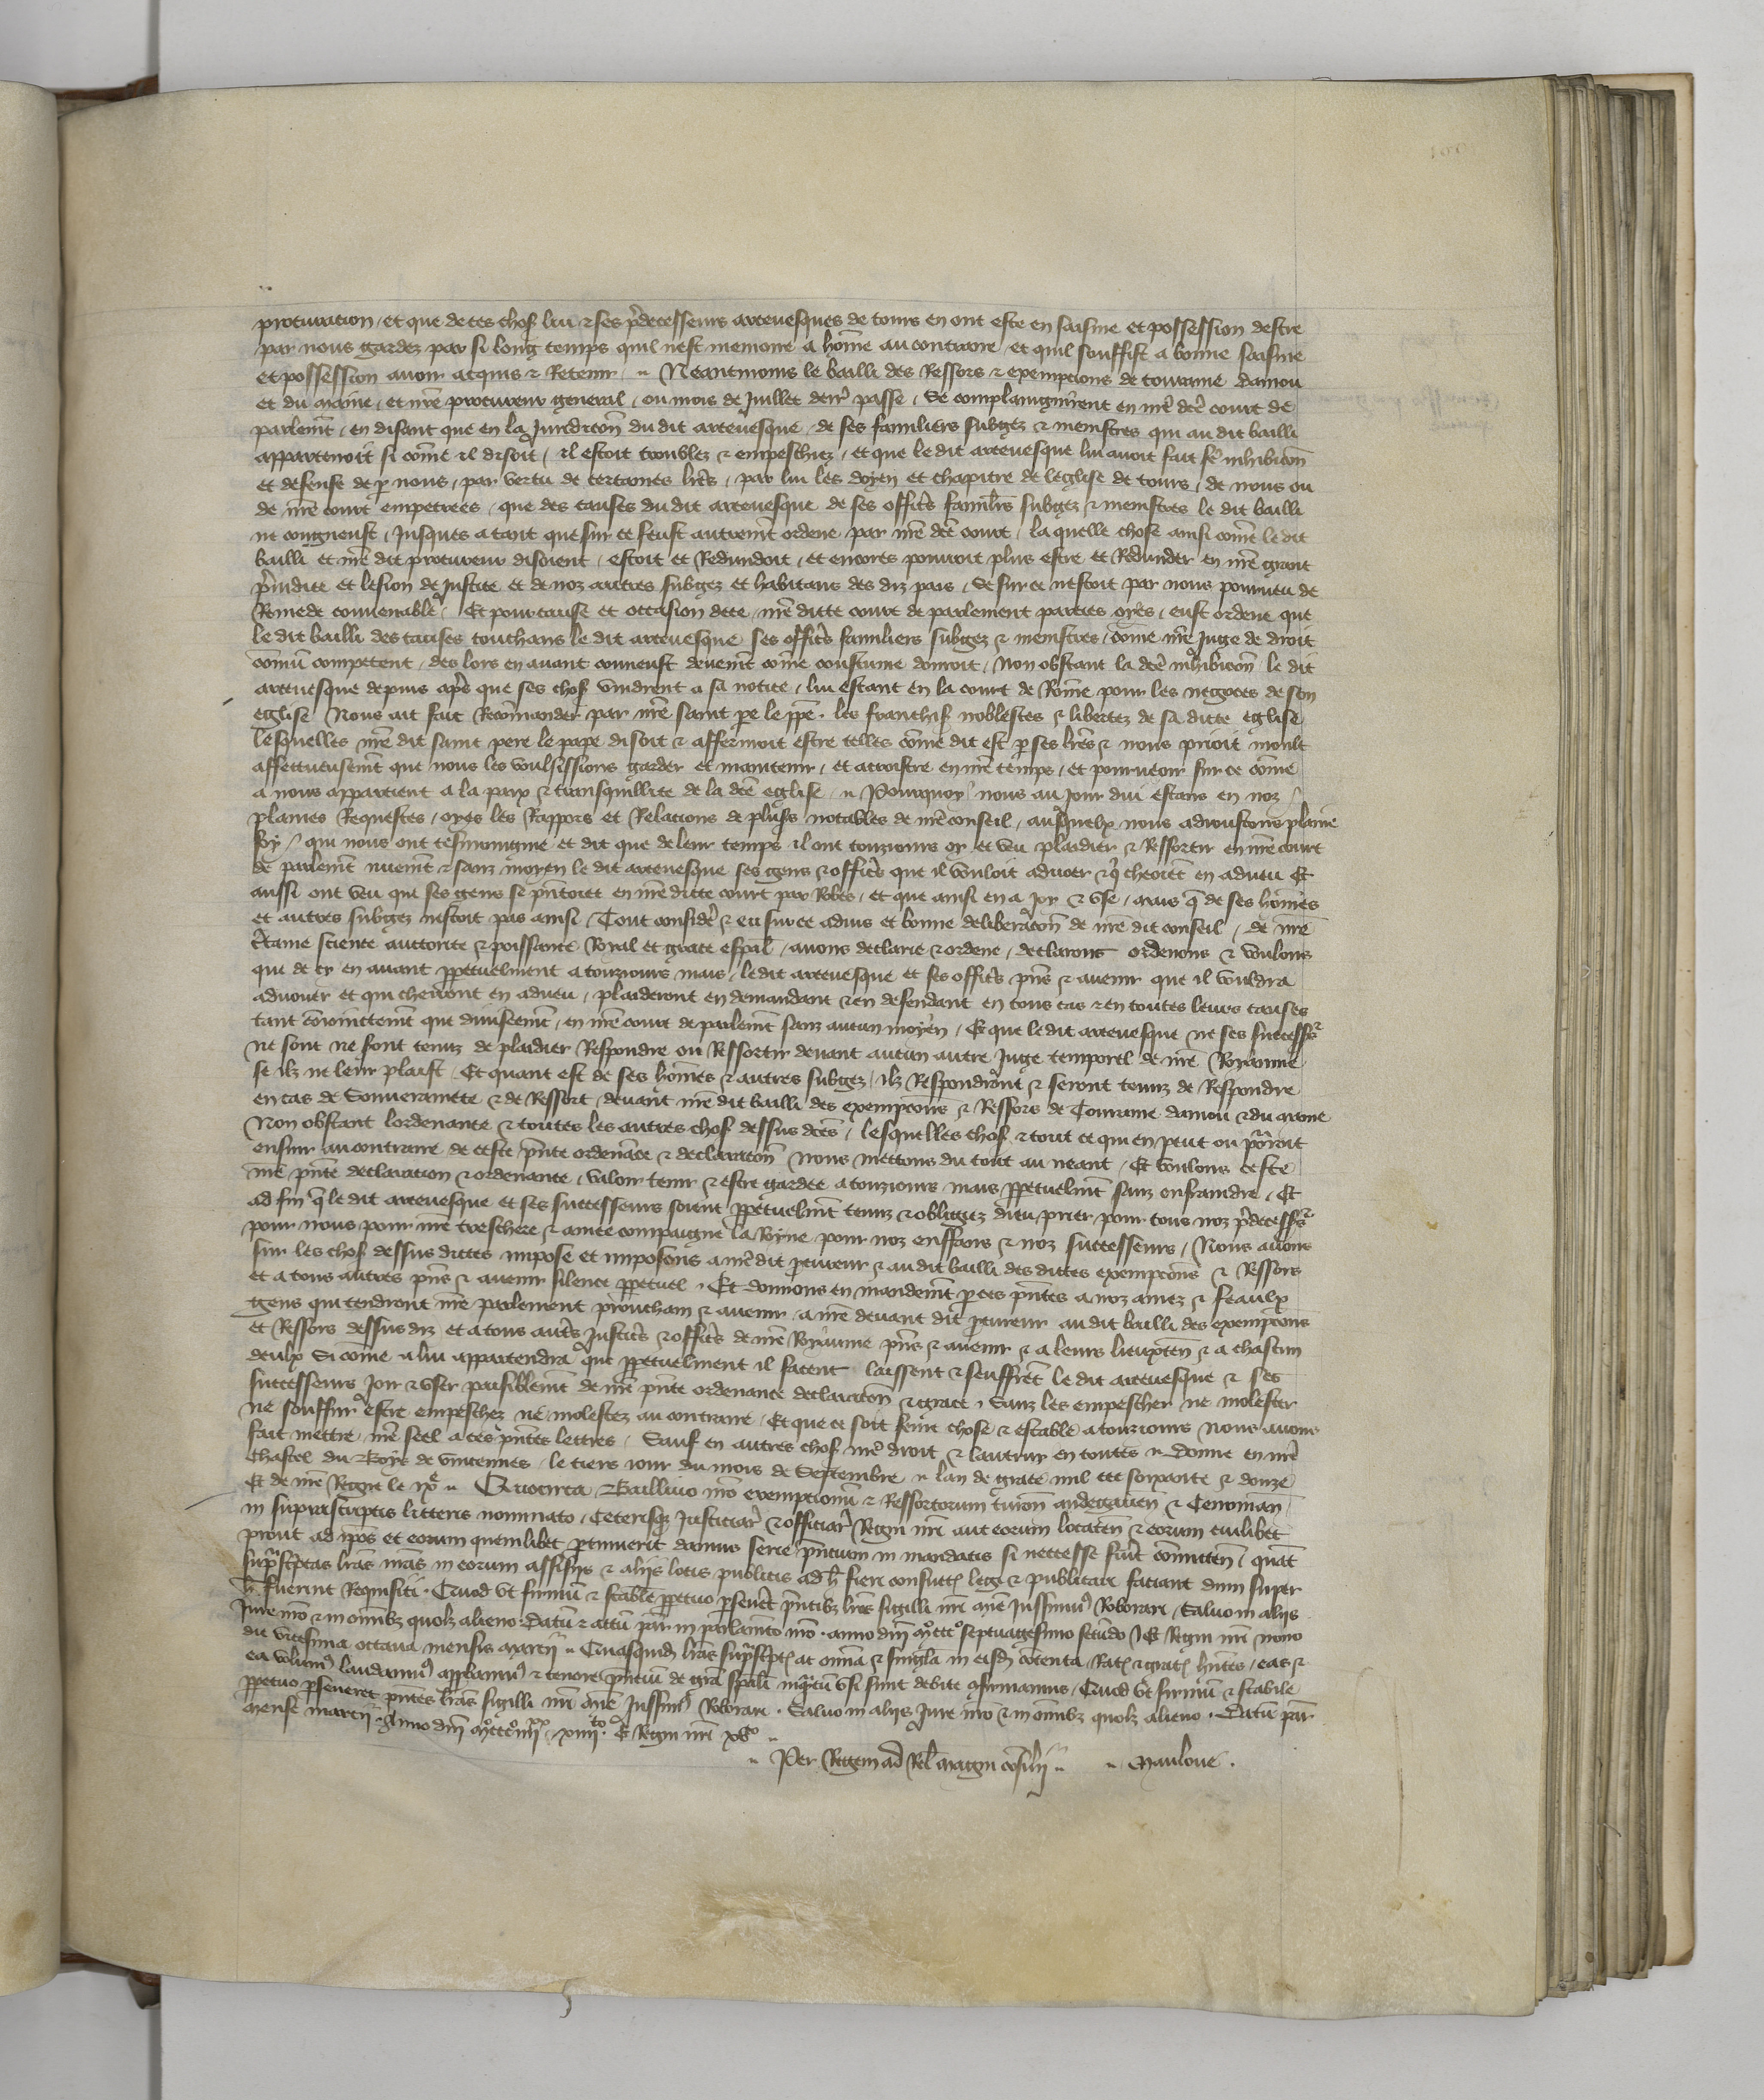 procuracion, et que de ces chos lui & ses p̃decesseurs arcevesques de tours en ont este en saisine et possession destre
par nous gardez par si long temps quil nest memoire a hõme au contraire et quil souffist a bonne saisine
et possession avoir acquis & Retenir. Neantmoins le bailli des Ressors & exempcions de touraine danjou
et du maine, et nr̃e procureur general, ou mois de Juillet derr̃ passe, se complaingnirent en nr̃e dc̃e court de
parlem̃t, en disant que en la Juridicc̃on du dit arcevesque, de ses familiers subgez & menistres qui au dit bailli
appartenoit si com̃e il disoit, il estoit troublez & empeschiez, et que le dit arcevesque lui avoit fait fẽ inhibicc̃on
et defense de p nous, par vertu de certaines lr̃es, par lui les doyen et chapitre de leglise de tours, de nous ou
de nr̃e court empetrees, que des causes du dit arcevesque de ses offic̃rs famil̃rs subgez & menistres le dit bailli
ne congneust, Jusques a tant que sur ce feust autrem̃t ordene par nr̃e dc̃e court, la quelle chose ainsi com̃e le dit
bailli et nr̃e dit procureur disoient, estoit et Redundoit, et encores pourroit plus estre et Redunder en nr̃e grant
p̃judice et lesion de Justice et de noz autres subgez et habitans des diz pais, se sur ce nestoit par nous pourveu de
Remede convenable. Et pour cause et occasion de ce, nr̃e ditte court de parlement parties oyes, eust ordene que
le dit bailli des causes touchans le dit arcevesque ses offic̃rs familiers subgez & menistres, cõme nr̃e Juge de droit
cõmũ competent, des lors en avant conneust deuem̃t cõme coustume donroit, Non obstant la dc̃e inhibicc̃on le dit
arcevesque depuis ap̃s que ses chos vindrent a sa notice, lui estant en la court de Rõme pour les negoces de son
eglise Nous ait fait Recõmander par nr̃e saint pe le ppe. les franchis noblesces & libertez de sa ditte eglise
lesquelles nr̃e dit saint pere le pape disoit & affermoit estre telles cõme dit est p ses lr̃es & nous prioit moult
affectueusem̃t que nous les voulsissions garder et maintenir, et acroistre en nr̃e temps, et pourveoir sur ce cõme
a nous appartient a la paix & transquillite de la dc̃e eglise. Pourquoy nous au Jour dui estans en noz
plaines Requestes, oyes les Rappors et Relacions de plus̃s notables de nr̃e conseil, ausquelx nous adjoustons plaine
foy, qui nous ont tesmoingne et dit que de leur temps il ont touzjours oy et veu plaidier & Ressortir en nr̃e court
de parlem̃t nuem̃t & sanz moyen le dit arcevesque ses gens & offic̃rs que il vouloit advoer & q̃ cheoiẽt en adveu Et
aussi ont veu que ses gens se p̃ntoiẽt en nr̃e ditte court par Roles, et que ainsi en a joy & use, mais q̃ de ses hõmes
et autres subgez nestoit pas ainsi, Tout consider̃ & eu sur ce advis et bonne deliberac̃on de nr̃e dit conseil, de nr̃e
c̃taine science auctorite & poissance Royal et grace esp̃al, avons declarie & ordene, declarons ordenons & voulons
que de cy en avant ppetuelment a touzjours mais, le dit arcevesque et ses offic̃rs p̃ns & avenir que il vouldra
advouer et qui cherront en adveu, plaideront en demandant & en defendant en tous cas & en toutes leurs causes
tant cõjoinctem̃t que diviseem̃t, en nr̃e court de parlem̃t sanz aucun moyen, Et que le dit arcevesque ne ses successrs̃
ne sont ne soient tenuz de plaidier Respondre ou Ressortir devant aucun autre Juge temporel de nr̃e Royaume
se ilz ne leur plaist. Et quant est de ses hõmes & autres subgez, ilz Respondront & seront tenuz de Respondre
en cas de Souverainete & de Ressort, devant nr̃e dit bailli des exempc̃ons & Ressors de Touraine danjou & du maine
Non obstant lordenance & toutes les autres chos dessus dc̃es, lesquelles chos & tout ce qui en peut ou porroit
ensuir au contraire de ceste p̃nte ordenãce & declarac̃on Nous mettons du tout au neant, Et voulons ceste
nr̃e p̃nte declaracion & ordenance, valoir tenir & estre gardee a touzjours mais ppetuelm̃t sanz enfraindre, Et
ad fin q̃ le dit arcevesque et ses successeurs soient ppetuelm̃t tenuz & obligiez dieu prier pour tous noz p̃decessrs̃
pour nous pour nr̃e treschere & amee compaigne la Royne pour noz enffans & noz successeurs, Nous avons
sur les chos dessus dittes impose et imposons a nr̃e dit p̃cureur & au dit bailli des dittes exempc̃ons & Ressors
et a tous autres p̃ns & avenir silence ppetuel. Et donnons en mandem̃t p ces p̃ntes a noz amez & feaulx
gens qui tendront nr̃e parlement prouchain & avenir a nr̃e devant dit p̃cureur au dit bailli des exempc̃ons
et Ressors dessus diz et a tous aut̃s Justic̃rs & offic̃rs de nr̃e Royaume p̃ns & avenir & a leurs lieuxteñ & a chascun
deulx Si cõme a lui appartendra que ppetuelment il facent laissent & seuffrẽt le dit arcevesque & ses
successeurs joir & user paisiblem̃t de nr̃e p̃nte ordenance declarac̃on & grace, Sanz les empescher ne molester
ne souffrir estre empeschez ne molestez au contraire, Et que ce soit ferme chose & estable a touzjours Nous avons
fait mettre nr̃e seel a ces p̃ntes lettres. Sauf en autres chos nr̃e droit & lautruy en toutes. Donne en nr̃e
Chastel du Boys de vincennes, le tiers jour du mois de Septembre. lan de grace mil ccc soixante & douze
Et de nr̃e Regne le ixe. Quocirca Baillivo nr̃o exemptionũ & Ressortorum turoñ andegaveñ & Cenomañ
in suprascriptis litteris nominato, Ceterisq̃ Justiciar̃ & officiar̃ Regni nr̃i aut eorum locateñ & eorum cuilibet
prout ad ip̃os et eorum quemlibet ptinuerit damus serie p̃ntium in mandatis si necesse fũit cõmitteñ, quat̃
sup̃scptas lr̃as nr̃as in eorum assisiis & aliis locis publicis ad h̃ fieri consuet̃ legi & publicari faciant dum super
h̃ fuerint Requisiti. Quod ut firmũ & stabile ppetuo pseveret p̃ntibz lr̃is sigillũ nr̃m añe Jussim⁹ Roborari, Salvo in aliis
Jure nr̃o & in oĩbz quolz alieno. Datũ & actũ par̃ in parlam̃to nr̃o. anno dñi m̊ccc⁰ septuagesimo secũdo Et Regni nr̃i nono
die vicesima octava mensis marcii. Quasquidẽ lr̃as sup̃scptas ac oĩa & singl̃a in eisd̃ cõtenta Rat̃ & grat̃ hñtes, eas &
ea volum⁹ laudam⁹ approbam⁹ & tenore p̃ntiũ de gr̃a sp̃ali inq̃tũ usi sunt debite cõfirmamus, Quod ut firmũ & stabile
ppetuo pseveret p̃ntes lr̃as sigilli nr̃i añe Jussim⁹ Roborari. Salvo in aliis Jure nr̃o & in oĩbz quolz alieno. Datũ par̃
mense marcii. Anno dñi m̊ccc̊ iiiixx xiiiito. Et Regni nr̃i xvto
Per Regem ad Rel̃ magni cõsilii. Manloue.